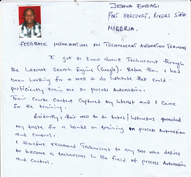 JESHUA EDREAGI
PORT HARCOURT, RIVERS STATE
NIGERIA.
FEEDBACK INFORMATION ON TECHNOCRAT AUTOMATION TRAINING
I got to know about Technocrat through
the Internet Search Engine (Google). Before then I had
been looking for a web to do institute that could
proficiently train me on process Automation.
Their course contents captured my interest and I came
for the training.
Evidently, their web to do Labs / Instructors provided
my basis for a hands on training on process Automation
and Control.
I therefore recommend Technocrat to any one who desires
to become a technocrat in the field of process Automation
and Control.